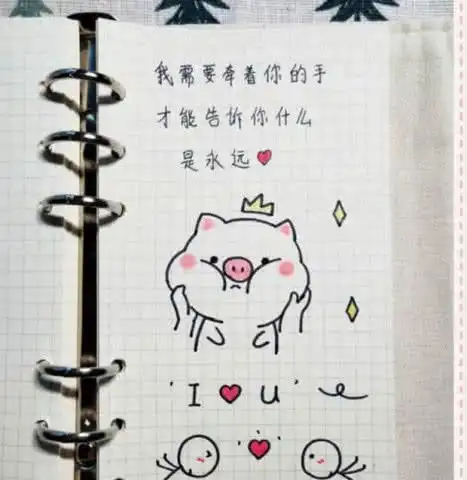 我需要牵着你的手
才能告诉你什么
是永远♥
'I ♥ U'